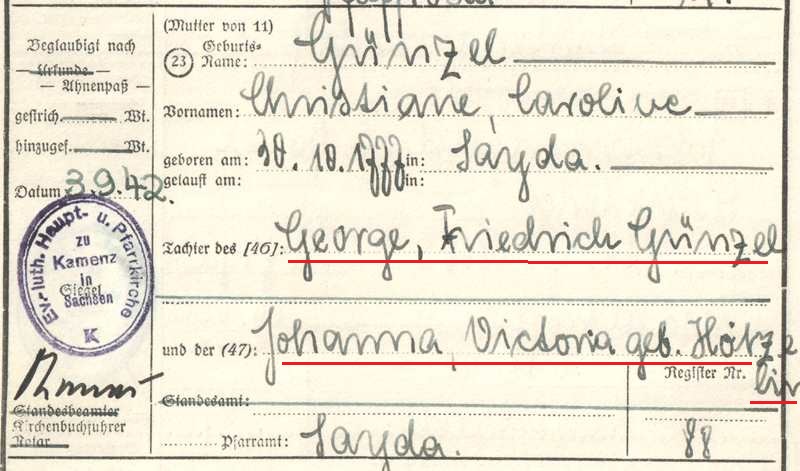 Beglaubigt nach
Urkunde —
— Ahnenpaß —
gestrich. Wt.
hinzugef. Wt.
Datum 3.9.42.
Ev.-luth. Haupt- u. Pfarrkirche
zu
Kamenz
in
Siegel
Sachsen
K
Standesbeamter
Kirchenbuchführer
Notar
(Mutter von 11)
(23) Geburts-
Name: Günzel
Vornamen: Christiane, Caroline
geboren am: 30.10.1777 in: Sayda.
getauft am: in:
Tochter des [46]: George, Friedrich Günzel
und der (47): Johanna, Victoria geb. Hötze
lin
Register Nr.
Standesamt:
Pfarramt: Sayda. 88